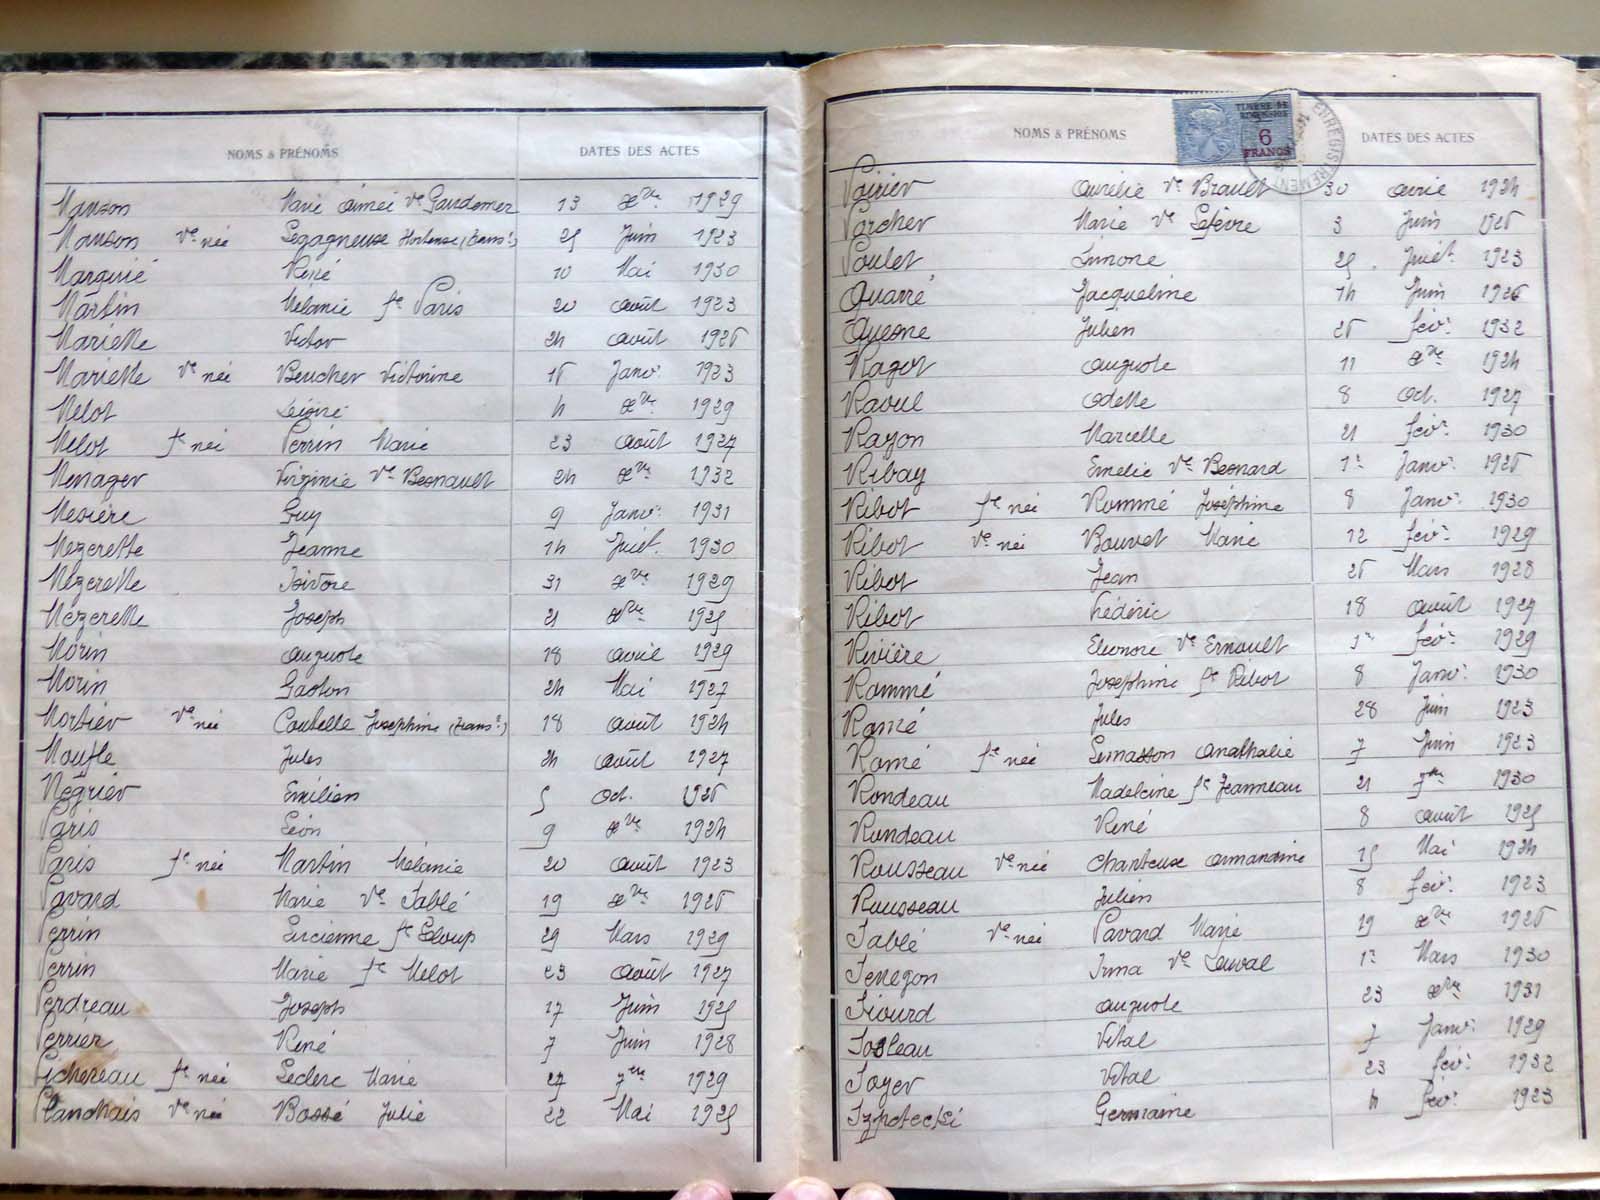 NOMS & PRÉNOMS DATES DES ACTES
Manson Marie Aimée Vve Gaudemer 13 Xbre 1929
Manson Vve née Legagneuse Hortense (trans.) 25 Juin 1923
Marquié René 10 Mai 1930
Martin Mélanie fe Paris 20 août 1923
Mariette Victor 24 août 1926
Mariette Vve née Beucher Victorine 16 Janv. 1923
Melot 4 Xbre 1929
Melot fe née Perrin Marie 23 août 1927
Menager Virginie Vve Besnault 24 Xbre 1932
Mesière Guy 9 Janv. 1931
Mezerette Jeanne 14 Juiet. 1930
Mézerette Isidore 31 Xbre 1929
Mézerette Joseph 21 Xbre 1925
Morin auguste 18 avril 1929
Morin Gaston 24 Mai 1927
Mortier Vve née Coubelle Joséphine (trans.) 18 août 1924
Moufle Jules 24 août 1927
Négrier Emilien 5 Oct. 1926
Paris Léon 9 Xbre 1924
Paris fe née Martin Mélanie 20 août 1923
Pavard Marie Vve Sablé 19 Xbre 1926
Perrin Lucienne fe Leloup 29 Mars 1929
Perrin Marie fe Melot 23 août 1927
Perdreau Joseph 17 Juin 1925
Perrier René 7 Juin 1928
Pichereau fe née Leclerc Marie 27 7bre 1929
Planchais Vve née Bossé Julie 22 Mai 1925
NOMS & PRÉNOMS DATES DES ACTES
TIMBRE DE DIMENSION
6
FRANCS
ENREGISTREMENT
Poirier Aurélie Vve Brault 30 avril 1924
Porcher Marie Vve Lefèvre 3 Juin 1926
Poulet Simone 25 Juiet. 1923
Quarré Jacqueline 14 Juin 1926
Quesne Julien 26 fév. 1932
Ragot auguste 11 Xbre 1924
Raoul Odette 8 Oct. 1927
Rayon Marcelle 21 fév. 1930
Ribay Emelie Vve Besnard 1er Janv. 1926
Ribot fe née Rommé Joséphine 8 Janv. 1930
Ribot Vve née Bouvet Marie 12 fév. 1929
Ribot Jean 26 Mars 1928
Ribot frédéric 18 août 1927
Rivière Eléonore Vve Ernault 1er fév. 1929
Rommé Joséphine fe Ribot 8 Janv. 1930
Romé Jules 28 Juin 1923
Romé fe née Lemasson anathalie 7 Juin 1923
Rondeau Madeleine fe Jeanneau 21 7bre 1930
Rondeau René 8 août 1925
Rousseau Vve née Chanteuse armandine 15 Mai 1924
Rousseau Julien 8 fév. 1923
Sablé Vve née Pavard Marie 19 Xbre 1926
Senegon Irma Vve Leuval 1er Mars 1930
Siourd auguste 23 Xbre 1931
Sobleau Vital 7 Janv. 1929
Soyer Vital 23 fév. 1932
Szpotecki Germaine 4 fév. 1923